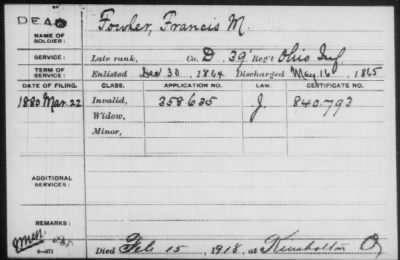 DEAD
Fowler, Francis M.
NAME OF SOLDIER:
SERVICE: Late rank, Co. D, 39 Reg't Ohio Inf.
TERM OF SERVICE: Enlisted Dec 30, 1864 Discharged May 16, 1865
DATE OF FILING. CLASS. APPLICATION NO. LAW. CERTIFICATE NO.
1880 Mar. 22 Invalid, 358635 J. 840.793
Widow,
Minor,
ADDITIONAL SERVICES:
REMARKS:
Died Feb 15, 1918, at